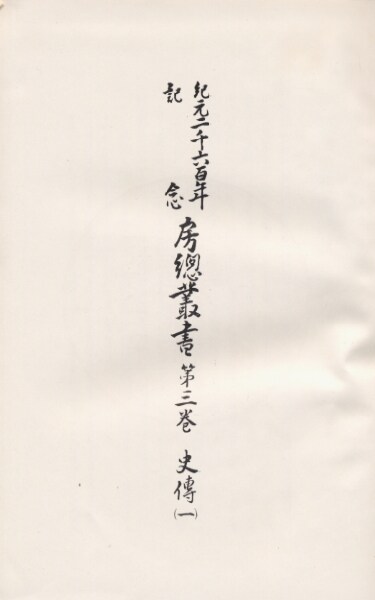 紀元二千六百年
記念
房總叢書 第三卷 史傳(一)